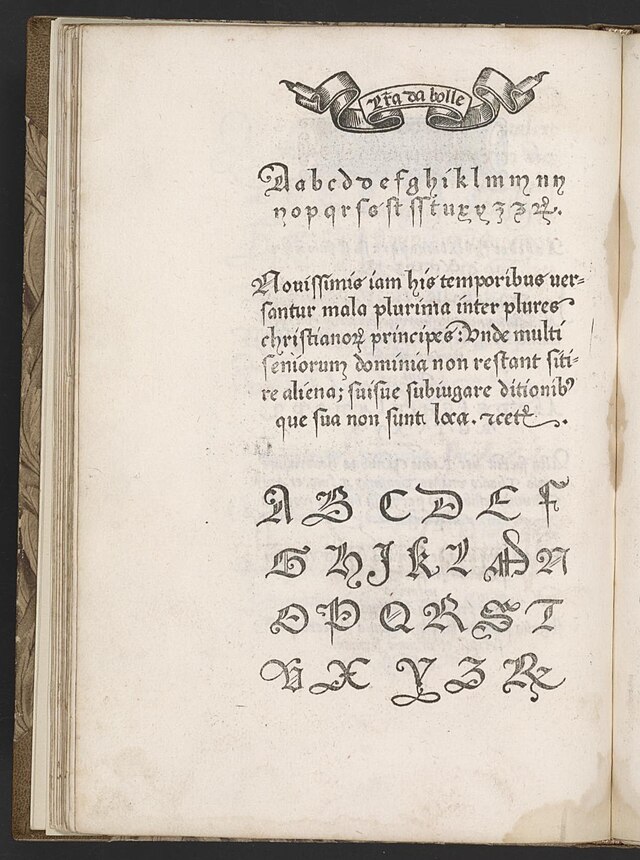 Lr̃a da bolle
A a b c d d e f g h i k l m m n n
n o p q r s s st ss t u x y z z ꝝ.
Nouissimis iam his temporibus uer=
santur mala plurima inter plures
christianoꝝ principes: Vnde multi
seniorum dominia non restant siti=
re aliena; suisue subiugare ditionibꝰ
que sua non sunt loca. ⁊cetꝝ.
A B C D E F
G H J K L M N
O P Q R S T
V X Y Z Ꝝ